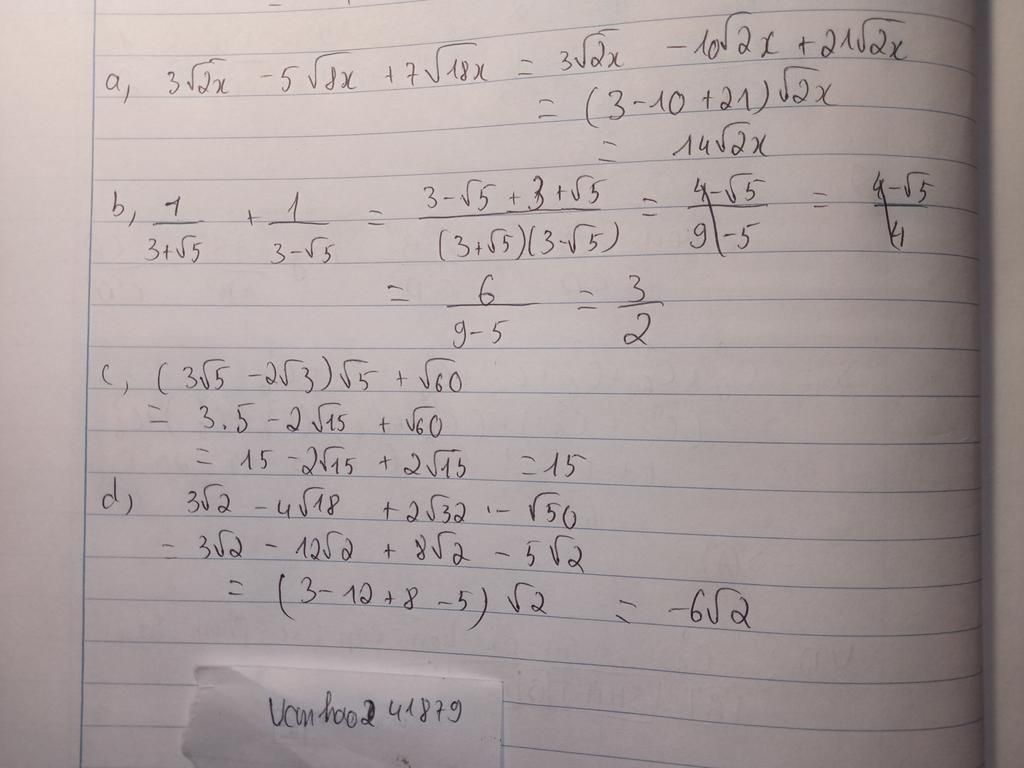 a, 3√2x - 5√8x + 7√18x = 3√2x - 10√2x + 21√2x
= (3 - 10 + 21)√2x
= 14√2x
b, 1/(3+√5) + 1/(3-√5) = (3-√5 + 3+√5)/((3+√5)(3-√5)) = (4-√5)/(9-5) = (4-√5)/4
= 6/(9-5) = 3/2
c, (3√5 - 2√3)√5 + √60
= 3.5 - 2√15 + √60
= 15 - 2√15 + 2√15 = 15
d) 3√2 - 4√18 + 2√32 - √50
= 3√2 - 12√2 + 8√2 - 5√2
= (3 - 12 + 8 - 5)√2 = -6√2
Vanhoo2 41879